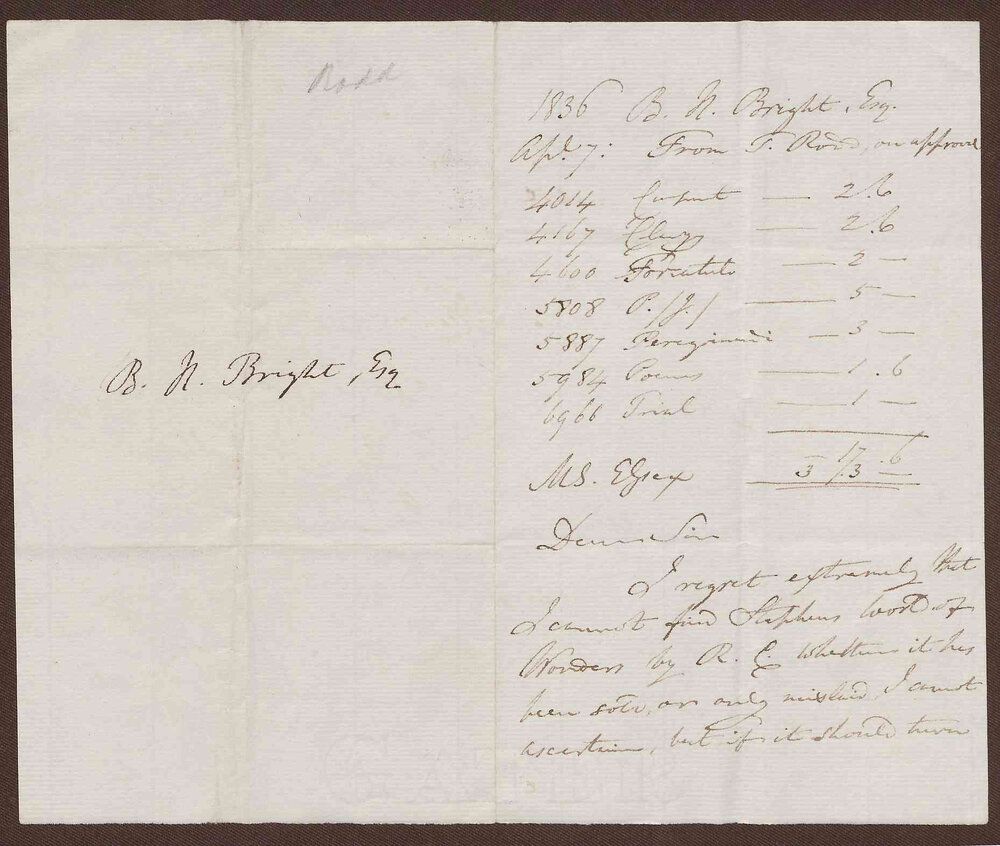 Rodd
B. H. Bright, Esq
1836 B. H. Bright, Esq.
Apl. 7: From T. Rodd, on approval
4014 — 2.6
4167 — 2.6
4600 Forcatulo — 2 —
5808 P. /J./ — 5 —
5887 — 3 —
5984 Poems — 1.6
6966 Trial — 1 —
17.6
MS. Essex 3.3 —
Dear Sir
I regret extremely that
I cannot find Stephens World of
Wonders by R. C. whether it has
been sold, or only mislaid, I cannot
ascertain, but if it should turn